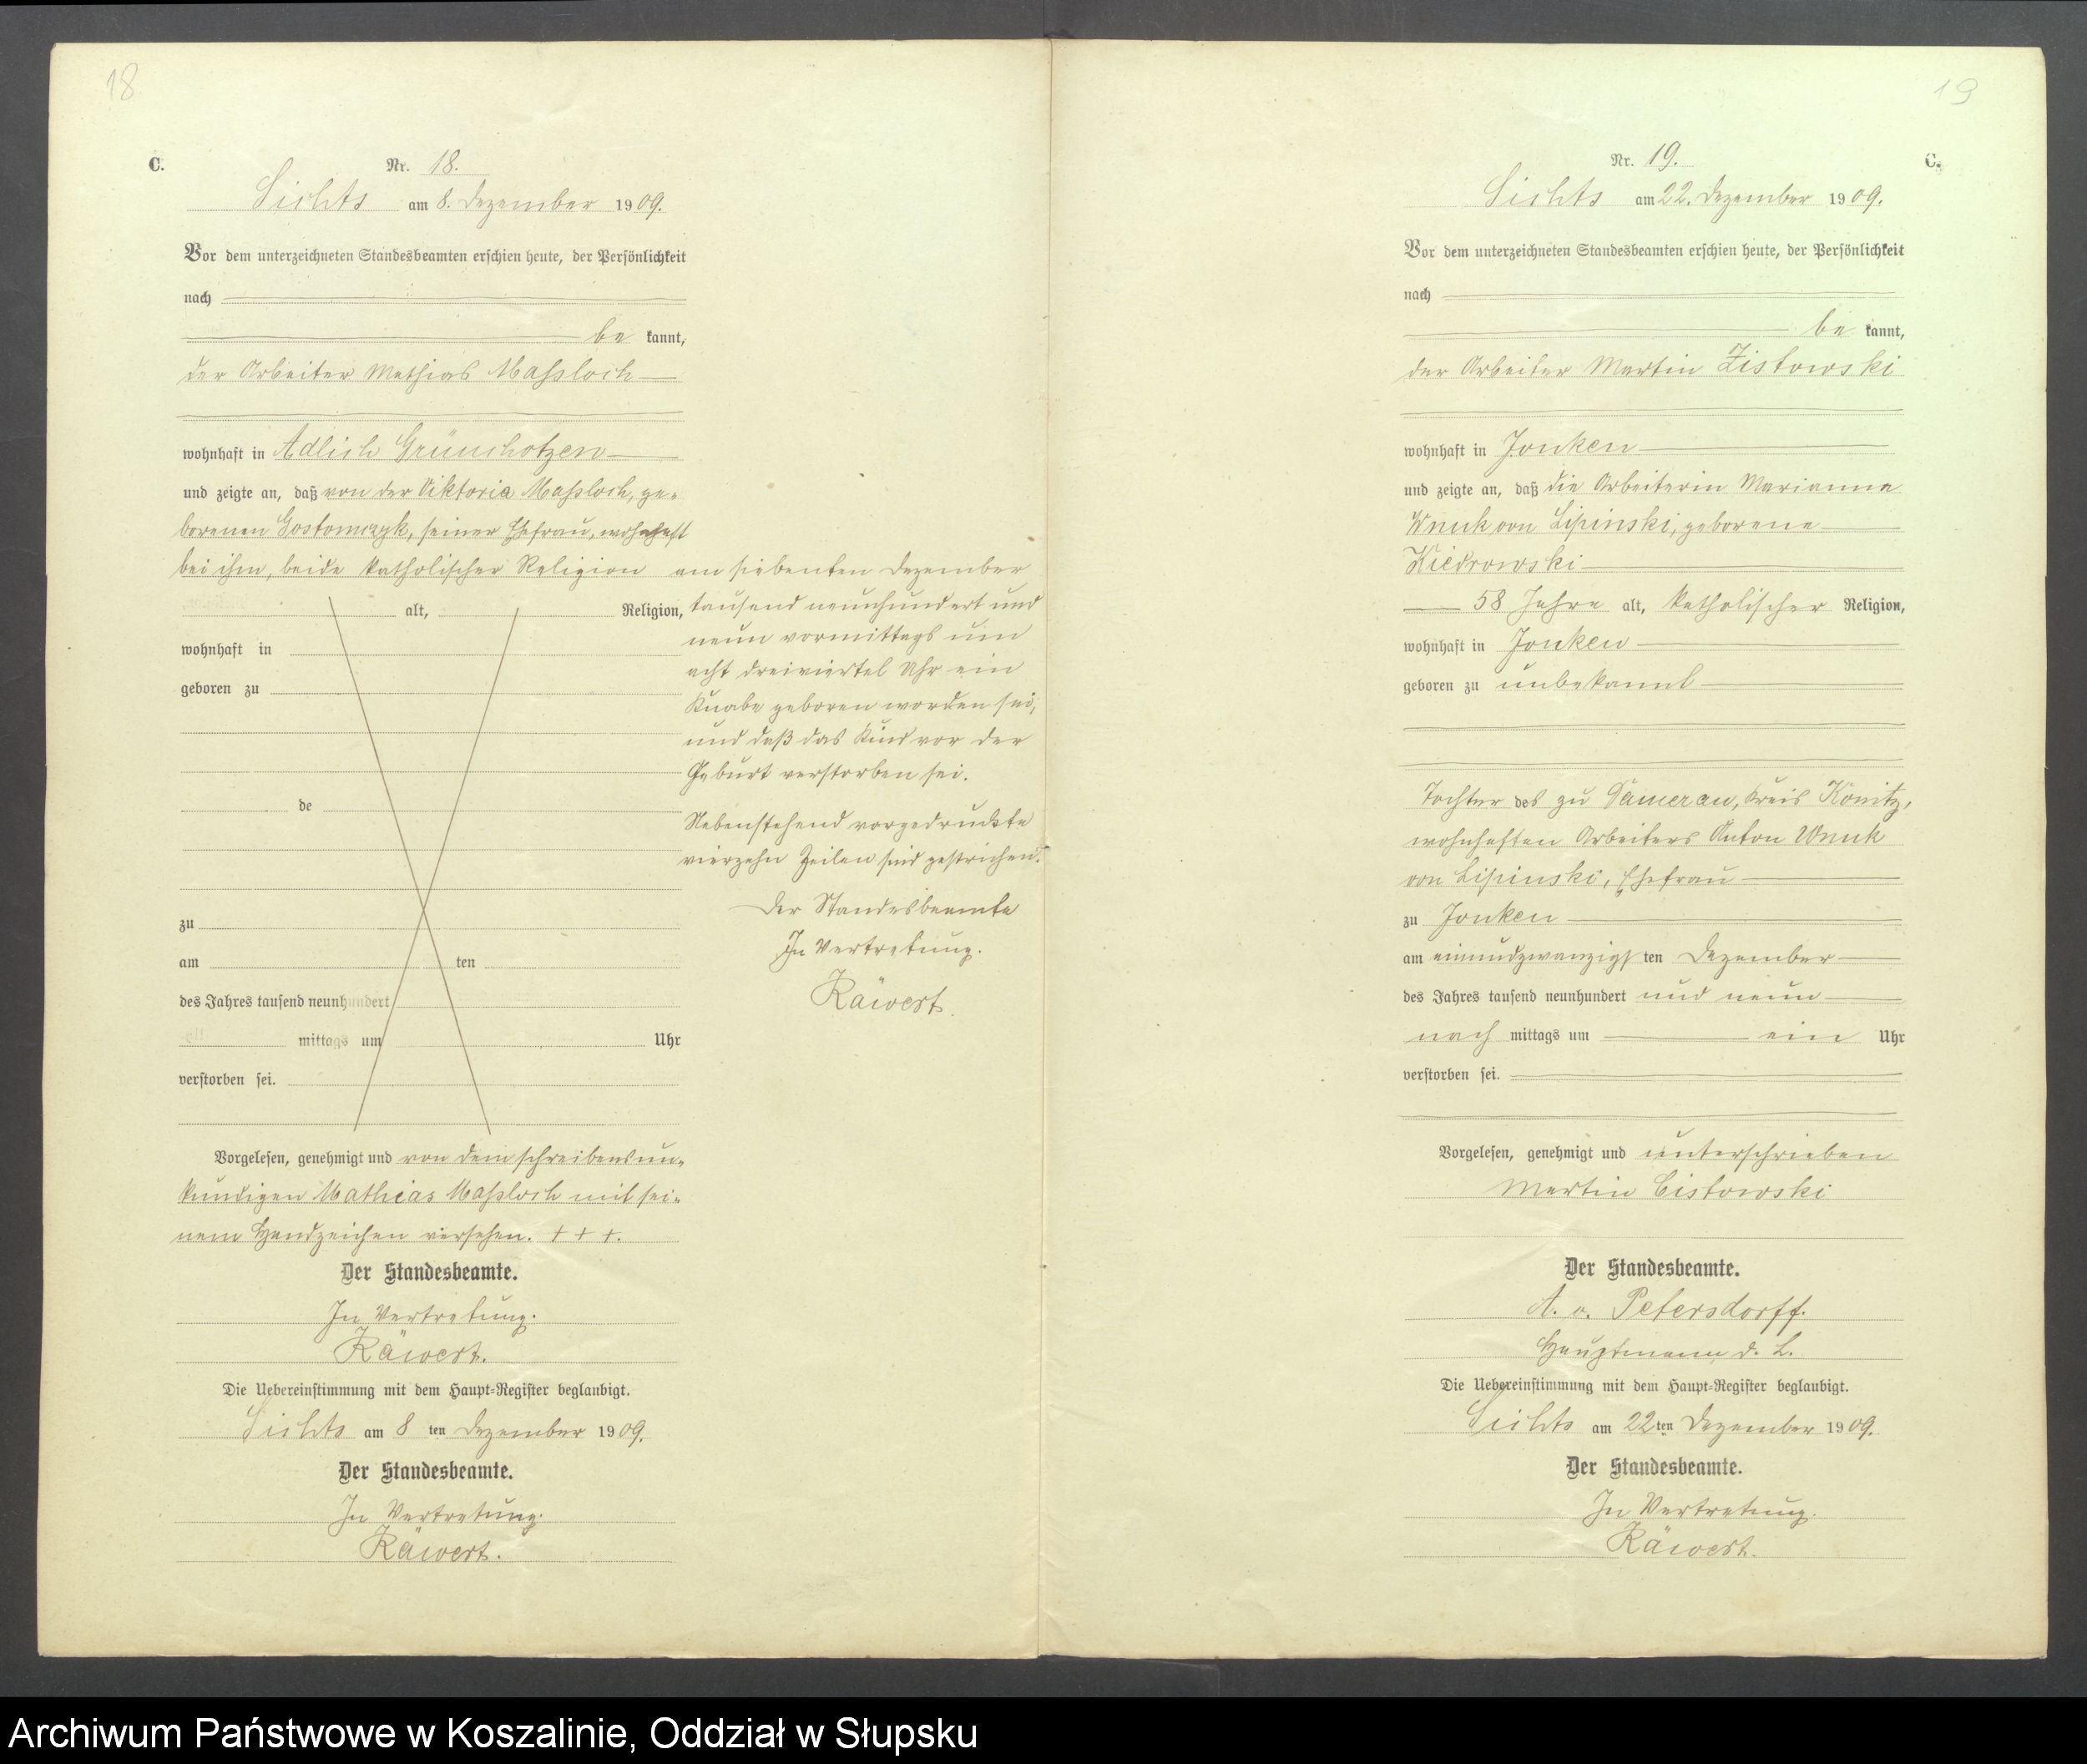 18
C.
Nr. 18.
Lichts am 8. Dezember 1909.
Vor dem unterzeichneten Standesbeamten erschien heute, der Persönlichkeit
nach
be kannt,
der Arbeiter Mathias Maßloch
wohnhaft in Adlich Grünchotzen
und zeigte an, daß von der Viktoria Maßloch, ge-
borenen Gostomczyk, seiner Ehefrau, wohnhaft
bei ihm, beide katholischer Religion
alt, Religion,
wohnhaft in
geboren zu
de
zu
am ten
des Jahres tausend neunhundert
mittags um Uhr
verstorben sei.
am siebenten Dezember
tausend neunhundert und
neun vormittags um
acht dreiviertel Uhr ein
Knabe geboren worden sei,
und daß das Kind vor der
Geburt verstorben sei.
Nebenstehend vorgedruckte
vierzehn Zeilen sind gestrichen.
Der Standesbeamte
In Vertretung.
Räwert.
Vorgelesen, genehmigt und von dem schreibensun-
kundigen Mathias Maßloch mit sei-
nem Handzeichen versehen. + + +.
Der Standesbeamte.
In Vertretung.
Räwert.
Die Uebereinstimmung mit dem Haupt-Register beglaubigt.
Lichts am 8 ten Dezember 1909.
Der Standesbeamte.
In Vertretung.
Räwert.
19
Nr. 19.
C.
Lichts am 22. Dezember 1909.
Vor dem unterzeichneten Standesbeamten erschien heute, der Persönlichkeit
nach
be kannt,
der Arbeiter Martin Zistowski
wohnhaft in Jonken
und zeigte an, daß die Arbeiterin Marianna
Wnuk von Lipinski, geborene
Kiedrowski
58 Jahre alt, katholischer Religion,
wohnhaft in Jonken
geboren zu unbekannt
Tochter des zu Damerau, Kreis Konitz,
wohnhaften Arbeiters Anton Wnuk
von Lipinski, Ehefrau
zu Jonken
am einundzwanzigsten Dezember
des Jahres tausend neunhundert und neun
nach mittags um ein Uhr
verstorben sei.
Vorgelesen, genehmigt und unterschrieben
Martin Cistowski
Der Standesbeamte.
A. v. Petersdorff.
Hauptmann d. L.
Die Uebereinstimmung mit dem Haupt-Register beglaubigt.
Lichts am 22ten Dezember 1909.
Der Standesbeamte.
In Vertretung.
Räwert.
Archiwum Państwowe w Koszalinie, Oddział w Słupsku